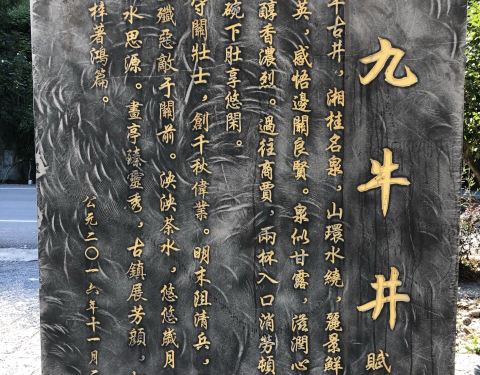 九牛井赋
千古井，湘桂名泉，山環水繞，麗景鮮
英，感悟邊關良賢。泉似甘露，滋潤心
醇香濃烈。過往商賈，兩杯入口消勞頓
碗下肚享悠閑。
守關壯士，創千秋偉業。明末阻清兵，
殲惡敵于關前。泱泱茶水，悠悠歲月
水思源。畫亭臻靈秀，古鎮展芳顏，
梓著鴻篇。
公元二〇一六年十一月